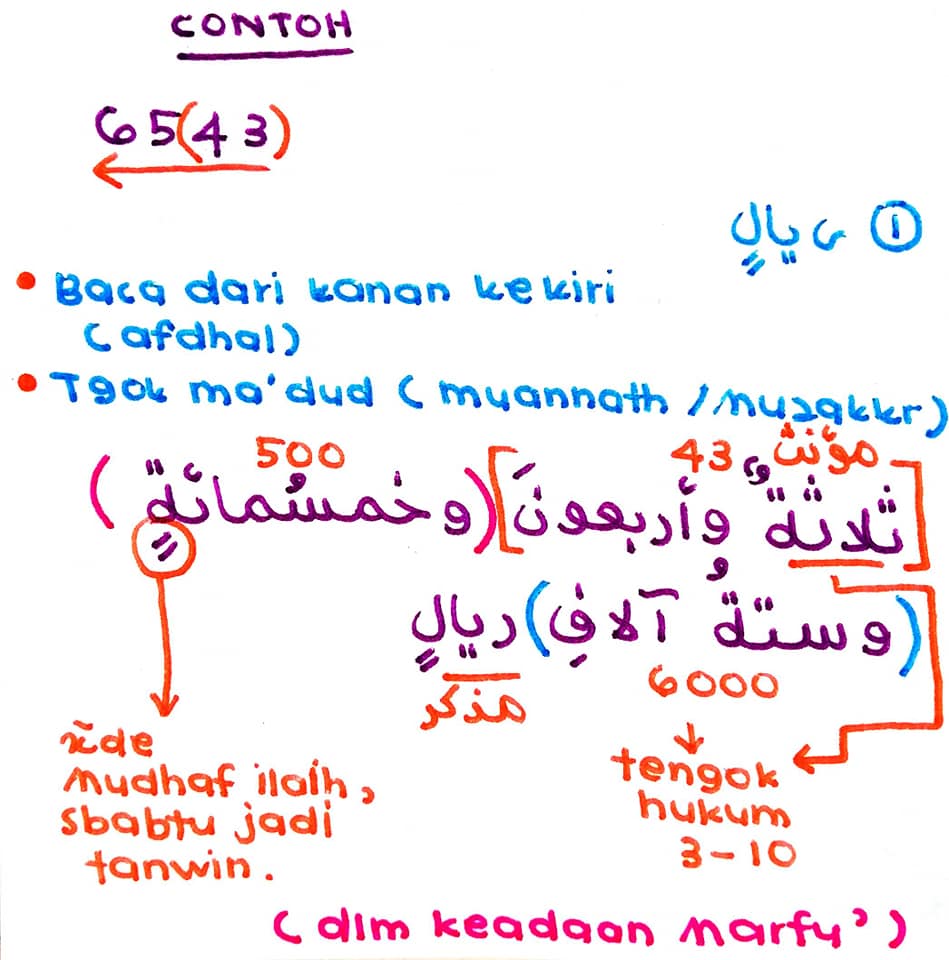 CONTOH
65(43)
① ريالٍ
• Baca dari kanan ke kiri
(afdhal)
• Tgok ma'dud (muannath / muzakkr)
500 43 مؤنث
[ثلاثةٌ وأربعونَ] (وخمسُمائةٍ)
(وستةُ آلافِ) ريالٍ
6000 مذكر
x̃de
Mudhaf ilaih,
sbabtu jadi
tanwin.
tengok
hukum
3-10
(dlm keadaan Marfu')